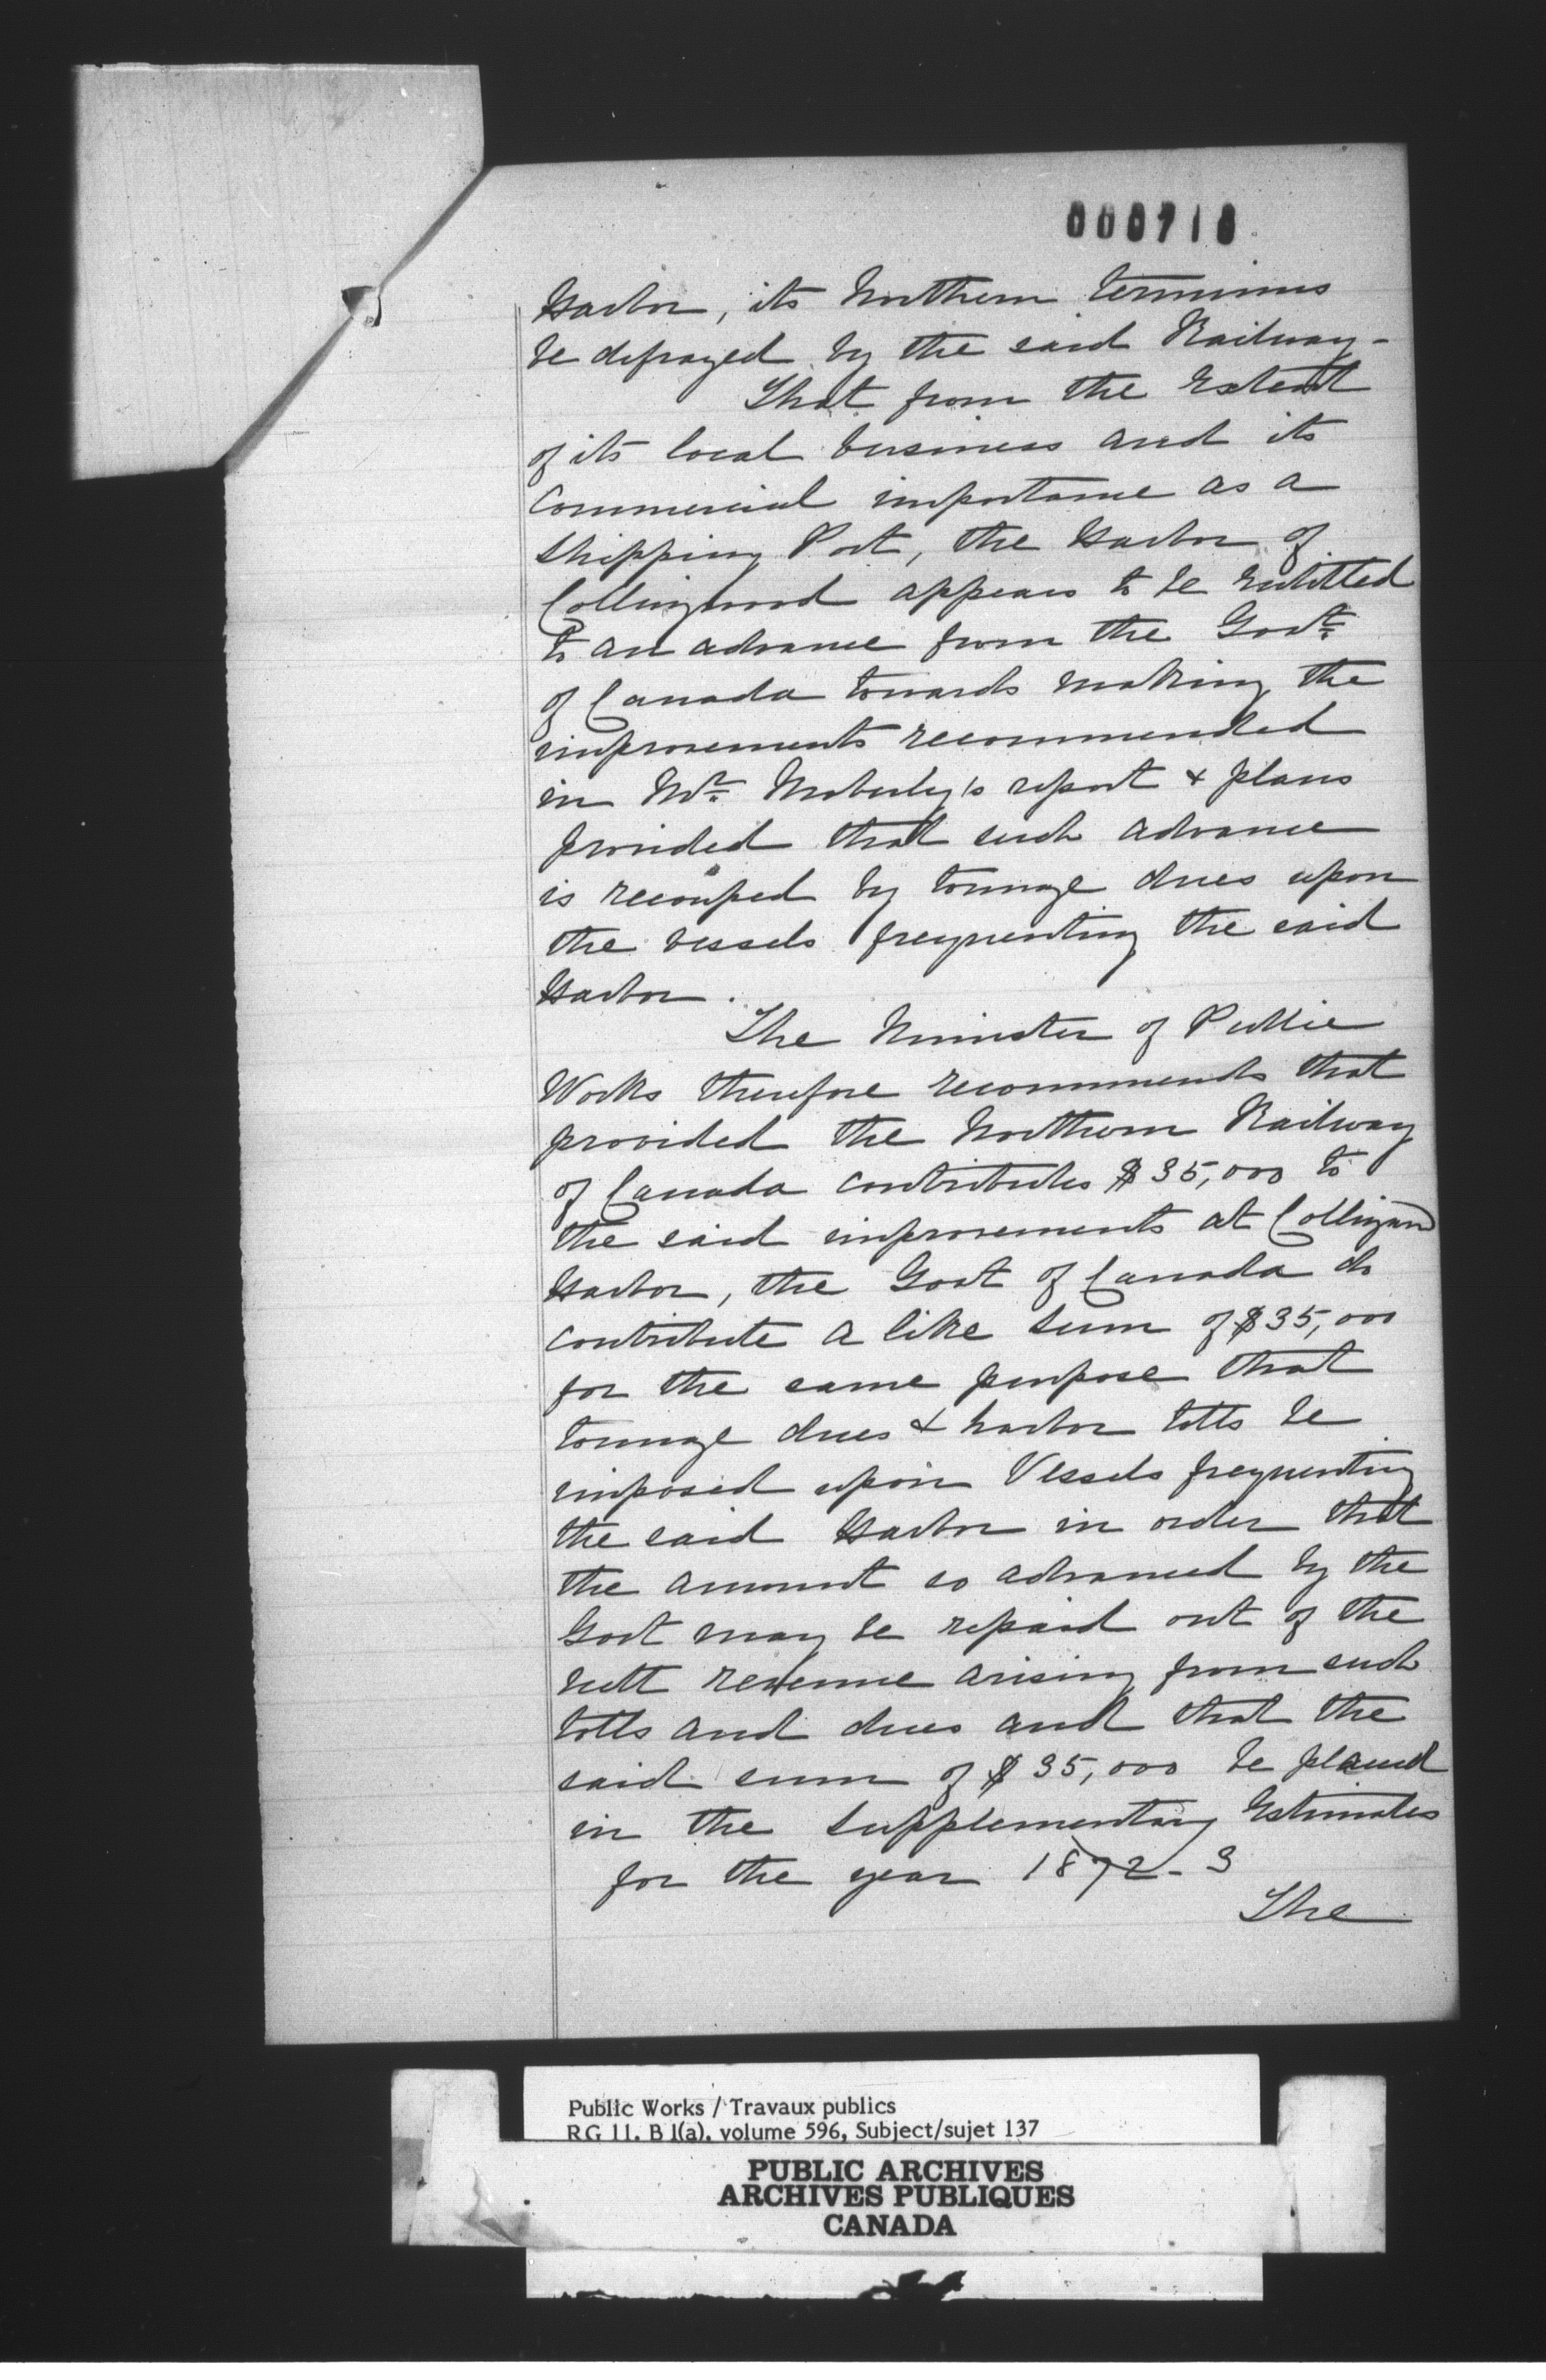 000710
Harbor, its Northern terminus
be defrayed by the said Railway -
That from the extent
of its local business and its
commercial importance as a
Shipping Port, the Harbor of
Collingwood appears to be entitled
to an advance from the Govt.
of Canada towards making the
improvements recommended
in Mr. Moberly's report & plans
provided that such advance
is recouped by tonnage dues upon
the vessels frequenting the said
Harbor.
The Minister of Public
Works therefore recommends that
provided the Northern Railway
of Canada contributes $35,000 to
the said improvements at Collingwood
Harbor, the Govt of Canada do
contribute a like sum of $35,000
for the same purpose that
tonnage dues & harbor tolls be
imposed upon Vessels frequenting
the said Harbor in order that
the amount so advanced by the
Govt may be repaid out of the
nett revenue arising from such
tolls and dues and that the
said sum of $35,000 be placed
in the Supplementary Estimates
for the year 1872-3
The
Public Works / Travaux publics
RG 11, B 1(a), volume 596, Subject/sujet 137
PUBLIC ARCHIVES
ARCHIVES PUBLIQUES
CANADA